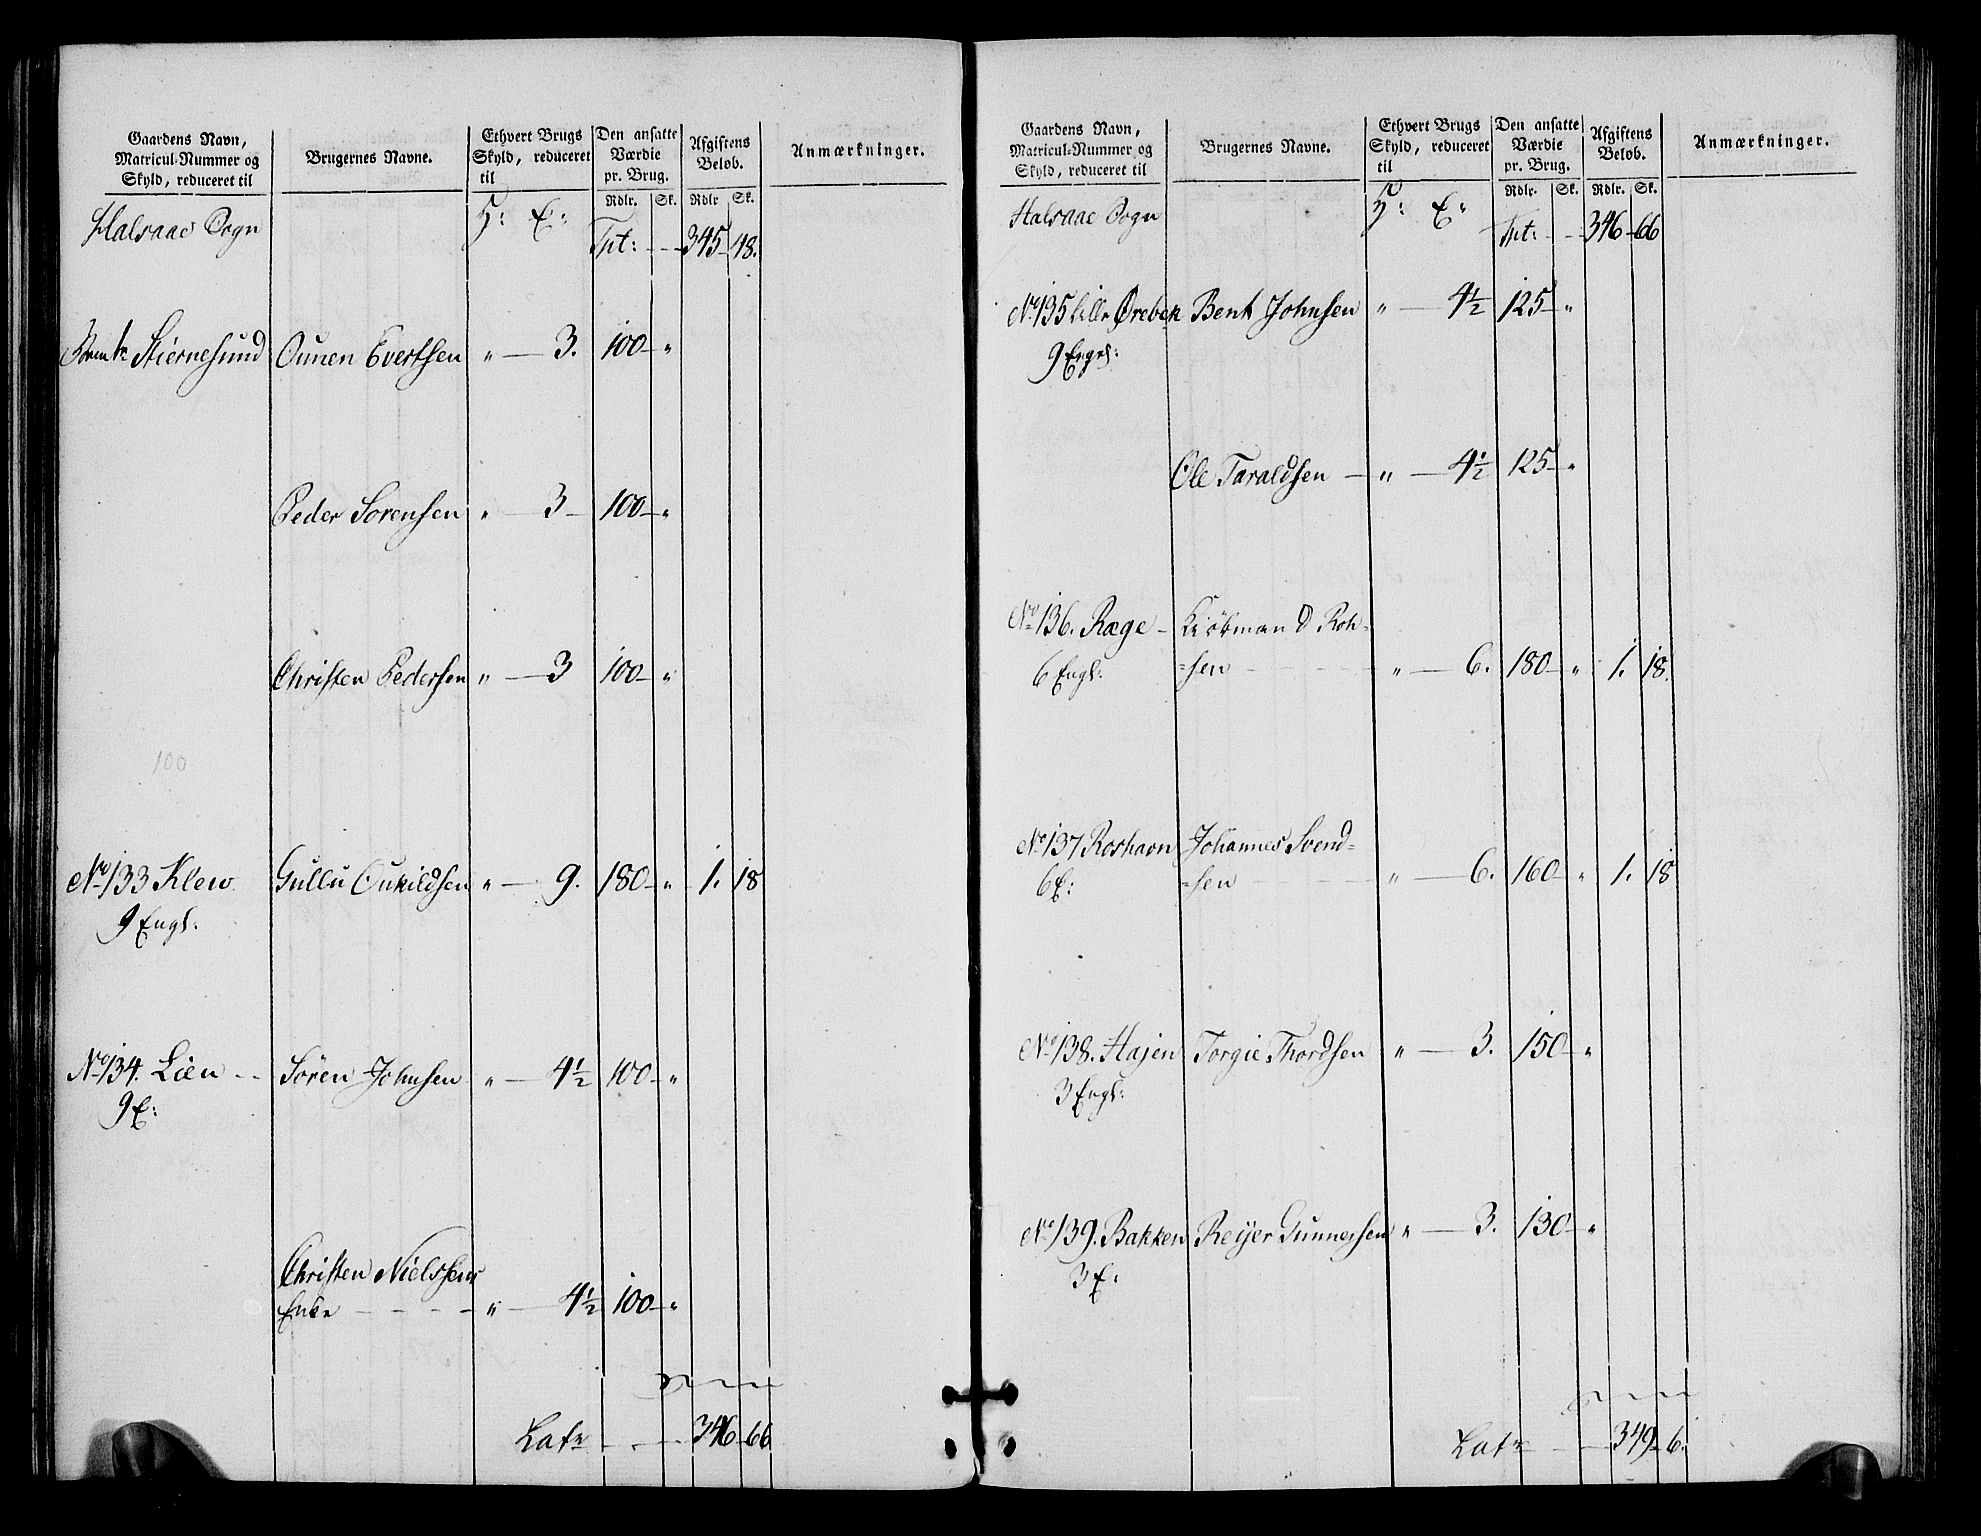 Gaardens Navn, Matricul-Nummer og Skyld, reduceret til
Brugernes Navne.
Ethvert Brugs Skyld, reduceret til
Den ansatte Værdie pr. Brug.
Afgiftens Beløb.
Anmærkninger.
Rdlr. Sk. Rdlr Sk.
Halsaae Sogn H: E: Tpt: 345 48.
Stiernesund Ounen Evertsen " 3. 100 "
Peder Sorensen " 3 100 "
Christen Pedersen " 3 100 "
100
No 133 Klew Gullu Oukildsen " 9. 180 " 1. 18
9 Engl:
No 134. Lien Søren Johnsen " 4½ 100 "
9 E:
Christen Nielssens
Enke " 4½ 100 "
Latr 346 66
Gaardens Navn, Matricul-Nummer og Skyld, reduceret til
Brugernes Navne.
Ethvert Brugs Skyld, reduceret til
Den ansatte Værdie pr. Brug.
Afgiftens Beløb.
Anmærkninger.
Rdlr. Sk. Rdlr. Sk.
Halsaae Sogn H: E: Tpt: 346 66
No 135 Lille Ørebek Bent Johnsen " 4½ 125 "
9 Engl:
Ole Taraldsen " 4½ 125 "
No 136. Ræge Kiøbmand Roh=
6 Engl: =sen " 6. 180 " 1. 18.
No 137 Roshavn Johannes Svend=
6 E: =sen " 6. 160 " 1. 18
No 138. Hajen Torgie Thordsen " 3. 150 "
3 Engl:
No 139. Bakken Reijer Gunnersen " 3. 130 "
3 E:
Latr 349 6.